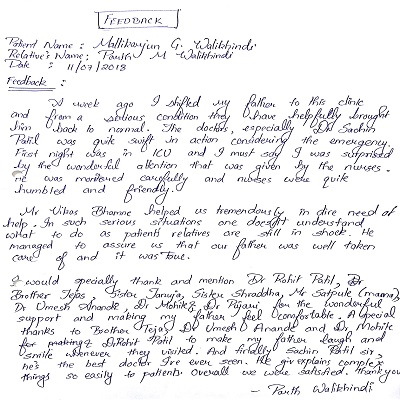 FEEDBACK
Patient Name : Mallikarjun G. Walikhindi
Relative's Name: Parth M Walikhindi
Date : 11/07/2018
Feedback :
A week ago I shifted my father to this clinic
and from a serious condition they have helpfully brought
him back to normal. The doctors, especially Dr Sachin
Patil was quite swift in action considering the emergency.
First night was in ICU and I must say I was surprised
by the wonderful attention that was given by the nurses.
He was monitored carefully and nurses were quite
humbled and friendly.
Mr Vikas Bhamne helped us tremendously in dire need of
help. In such serious situations one doesn't understand
what to do as patients relatives are still in shock. He
managed to assure us that our father was well taken
care of and it was true.
I would specially thank and mention Dr Rohit Patil,
Brother Tejas, Sister Tanuja, Sister Shraddha, Mr Satpute (mama),
Dr Umesh Anande, Dr Mohite, Dr Pujari, for the wonderful
support and making my father feel comfortable. A special
thanks to Brother Tejas, Dr Umesh Anande and Dr, Mohite
for making & Dr Rohit Patil to make my father laugh and
smile whenever they visited. And finally Sachin Patil sir,
he's the best doctor I've ever seen. He explains complex
things so easily to patients. Overall we were satisfied. Thank you
- Parth Walikhindi